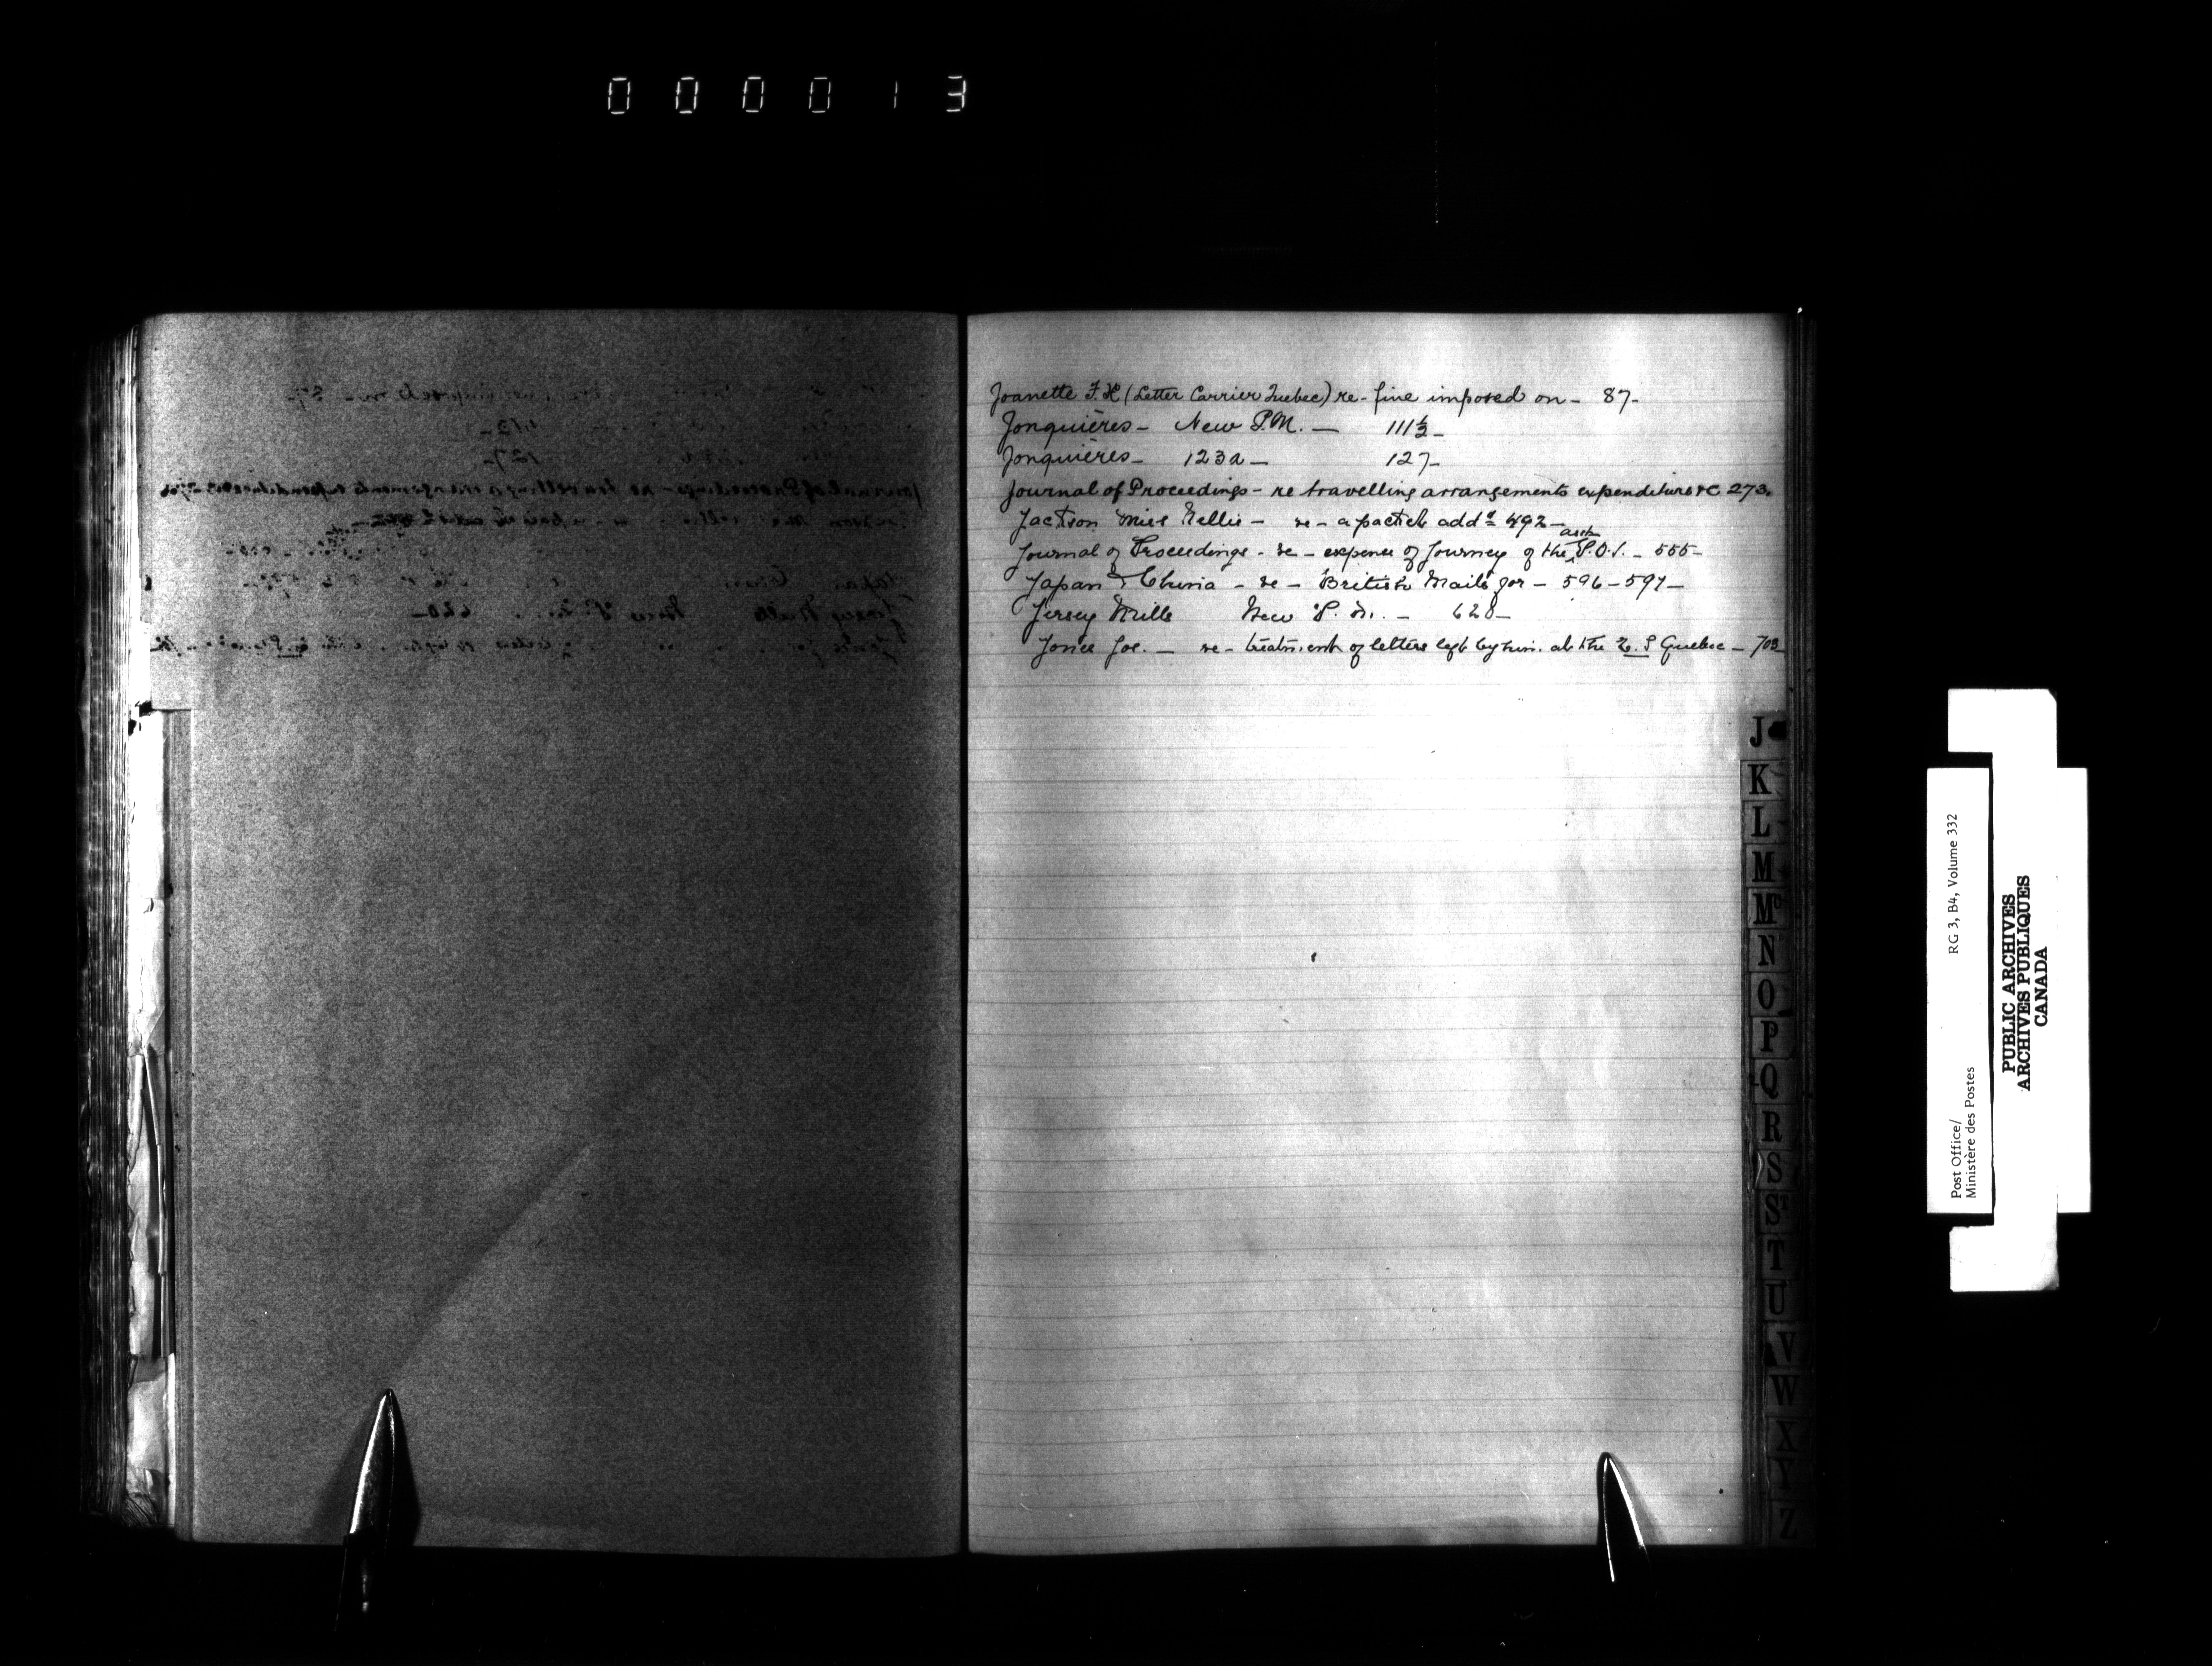 000013
Joanette F. X (Letter Carrier Quebec) re- fine imposed on - 87-
Jonquières - New P.M. — 111½ -
Jonquières - 123a - 127-
Journal of Proceedings - re travelling arrangements expenditure &c 273.
Jackson Miss Nellie - re - a packet add^d 492 -
Journal of Proceedings - re - expense of Journey of the asst P.O.I. - 555 -
Japan & China - re - British Mails for - 596 - 597 -
Jersey Mills New P. M. - 628 -
Jones Jos. - re - treatment of letters left by him at the S Quebec - 703
J
K
L
M
Mc
N
O
P
Q
R
S
ST
T
U
V
W
X
Y
Z
Post Office/ RG 3, B4, Volume 332
Ministère des Postes
PUBLIC ARCHIVES
ARCHIVES PUBLIQUES
CANADA